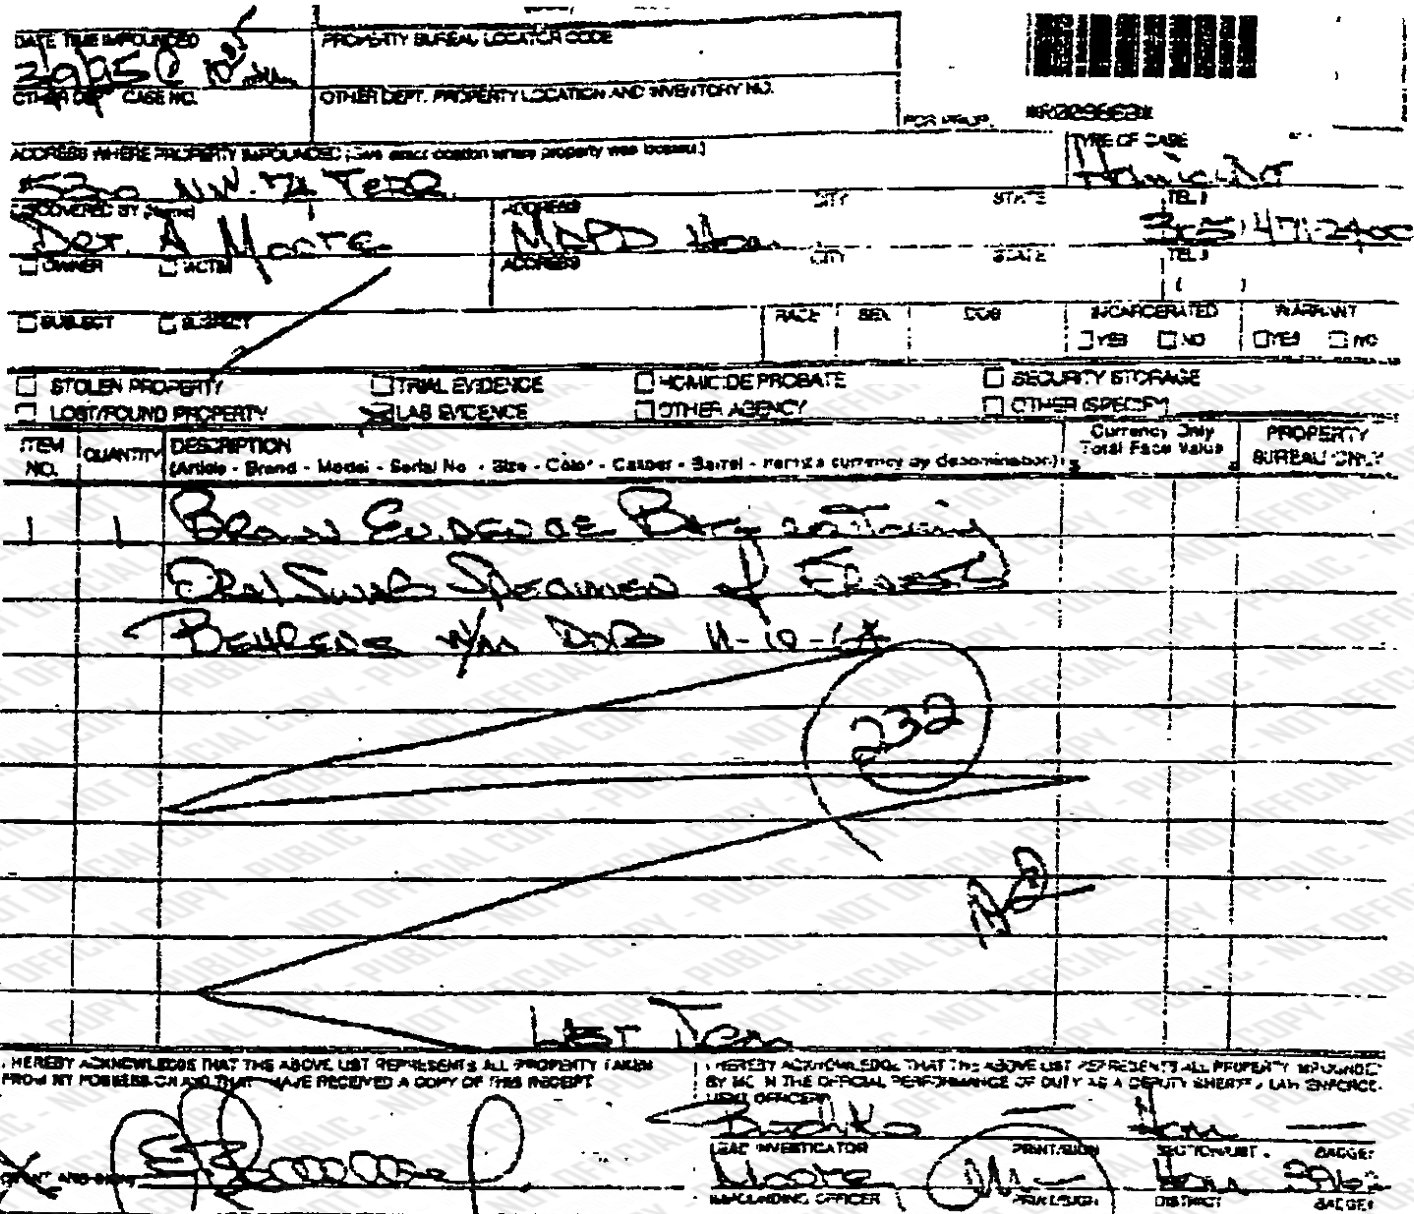 DATE TIME IMPOUNDED
PROPERTY BUREAU LOCATOR CODE
OTHER DEPT. CASE NO.
OTHER DEPT. PROPERTY LOCATION AND INVENTORY NO.
FOR PROP.
TYPE OF CASE
ADDRESS WHERE PROPERTY IMPOUNDED (Give exact location where property was located.)
Homicide
DISCOVERED BY (Name)
ADDRESS
CITY
STATE
TEL
Det. A Moore
MDPD Hom.
305 471-2400
OWNER
VICTIM
ADDRESS
CITY
STATE
TEL
( )
SUBJECT
SUSPECT
RACE
SEX
DOB
INCARCERATED
WARRANT
YES NO
YES NO
STOLEN PROPERTY
TRIAL EVIDENCE
HOMICIDE PROBATE
SECURITY STORAGE
LOST/FOUND PROPERTY
LAB EVIDENCE
OTHER AGENCY
OTHER (SPECIFY
ITEM NO.
QUANTITY
DESCRIPTION
(Article - Brand - Model - Serial No - Size - Color - Caliber - Barrel - Itemize currency by denomination.)
Currency Only
Total Face Value
PROPERTY
BUREAU ONLY
1 1 Brown Evidence Bag containing
Oral Swab Specimen of Ernest
Behrens W/M DOB
232
Last Item
I HEREBY ACKNOWLEDGE THAT THE ABOVE LIST REPRESENTS ALL PROPERTY TAKEN
FROM MY POSSESSION AND THAT I HAVE RECEIVED A COPY OF THIS RECEIPT
I HEREBY ACKNOWLEDGE THAT THE ABOVE LIST REPRESENTS ALL PROPERTY IMPOUNDED
BY ME IN THE OFFICIAL PERFORMANCE OF DUTY AS A DEPUTY SHERIFF, LAW ENFORCE-
MENT OFFICER
Hom
LEAD INVESTIGATOR
PRINT/SIGN
SECTION/UNIT
BADGE#
PRINT AND SIGN
Moore
Hom
IMPOUNDING OFFICER
PRINT/SIGN
DISTRICT
BADGE#
NOT OFFICIAL COPY - PUBLIC